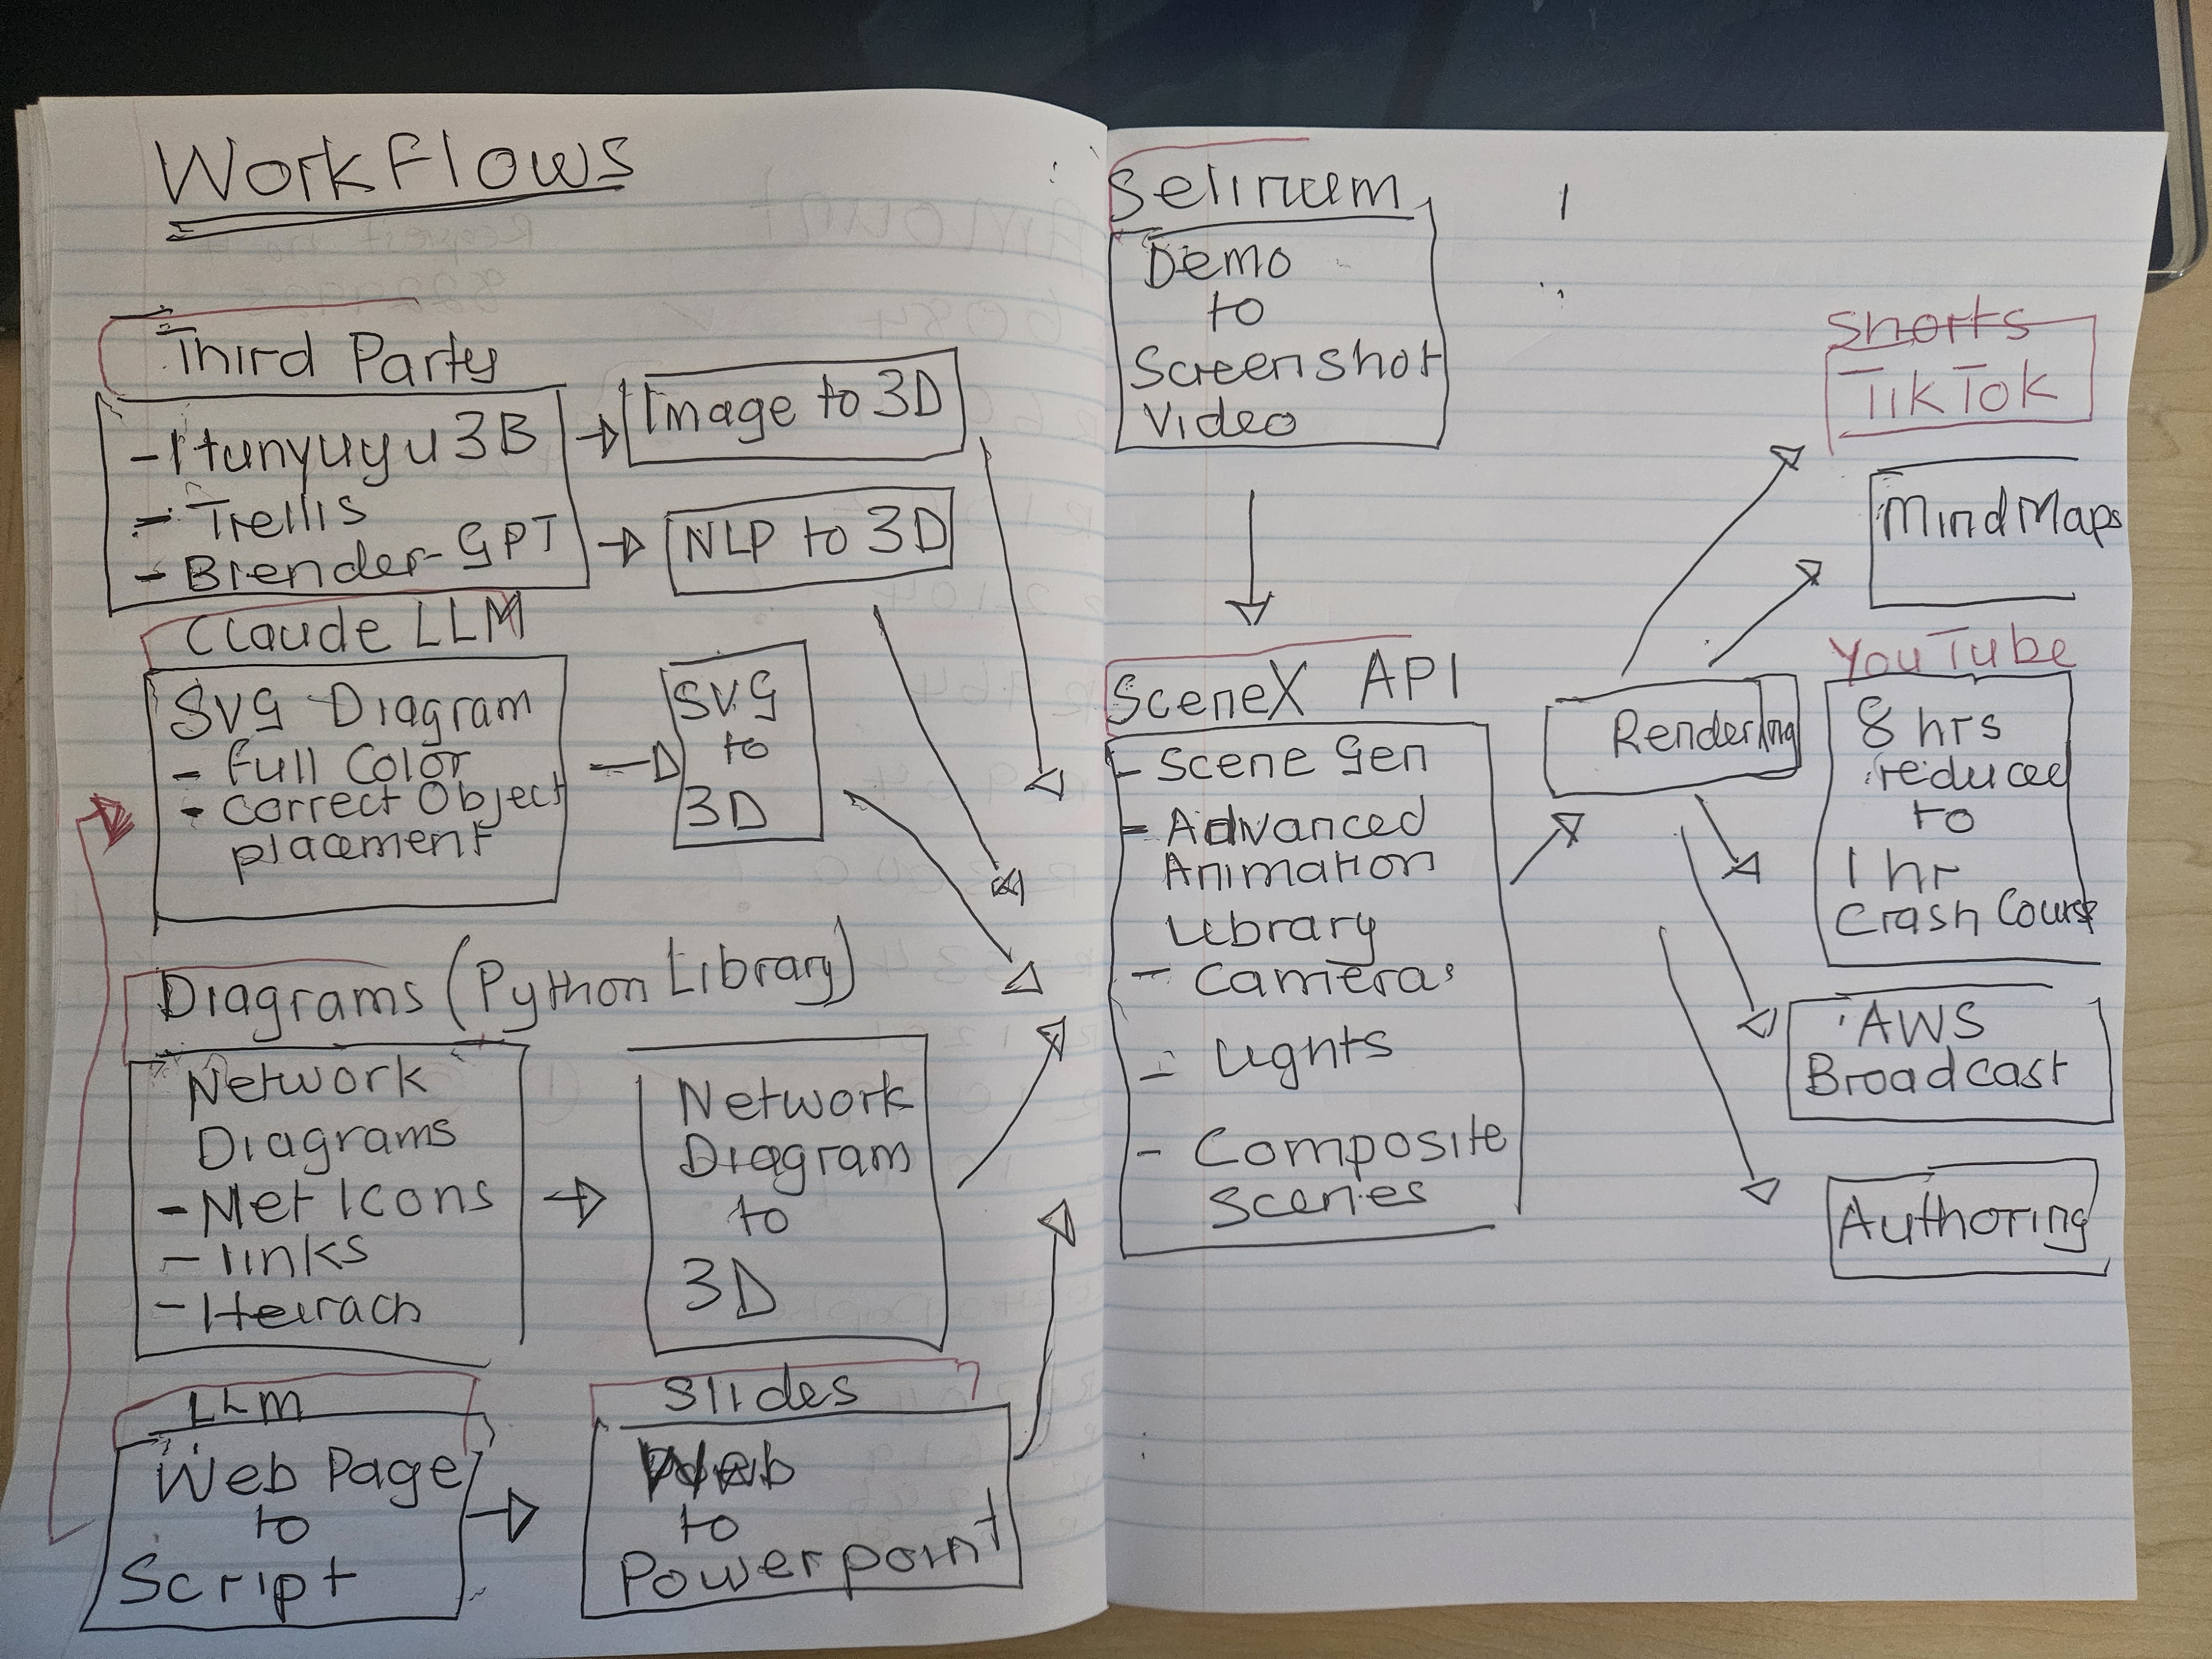 WorkFlows
Third Party
- Hunyuyu 3B
- Trellis
- Blender-GPT
Image to 3D
NLP to 3D
Claude LLM
SVG Diagram
- Full Color
- Correct Object
placement
SVG
to
3D
Diagrams (Python Library)
Network
Diagrams
- Net Icons
- links
- Heirach
Network
Diagram
to
3D
LLM
Web Page
to
Script
Slides
Web
to
Powerpoint
Selinum
Demo
to
Screenshot
Video
SceneX API
- Scene Gen
- Advanced
Animation
Library
- Cameras
- Lights
- Composite
Scenes
Rendering
Shorts
TikTok
MindMaps
YouTube
8 hrs
reduced
to
1 hr
Crash Course
AWS
Broadcast
Authoring